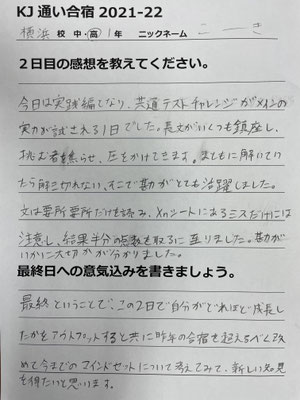 KJ 通い合宿 2021-22
横浜 校 中・高 1 年 ニックネーム こーき
２日目の感想を教えてください。
今日は実践編となり、共通テストチャレンジがメインの
実力が試される1日でした。長文がいくつも鎮座し、
挑む者を焦らせ、圧をかけてきます。まともに解いてい
たら解き切れない。そこで勘がとても活躍しました。
文は要所要所だけを読み、Xnシートにあるミスだけには
注意し、結果半分の点数を取るに至りました。勘が
いかに大切かが分かりました。
最終日への意気込みを書きましょう。
最終ということで、この2日で自分がどれほど成長し
たかをアウトプットすると共に昨年の合宿を超えるべく改
めて今までのマインドセットについて考えてみて、新しい知見
を得たいと思います。